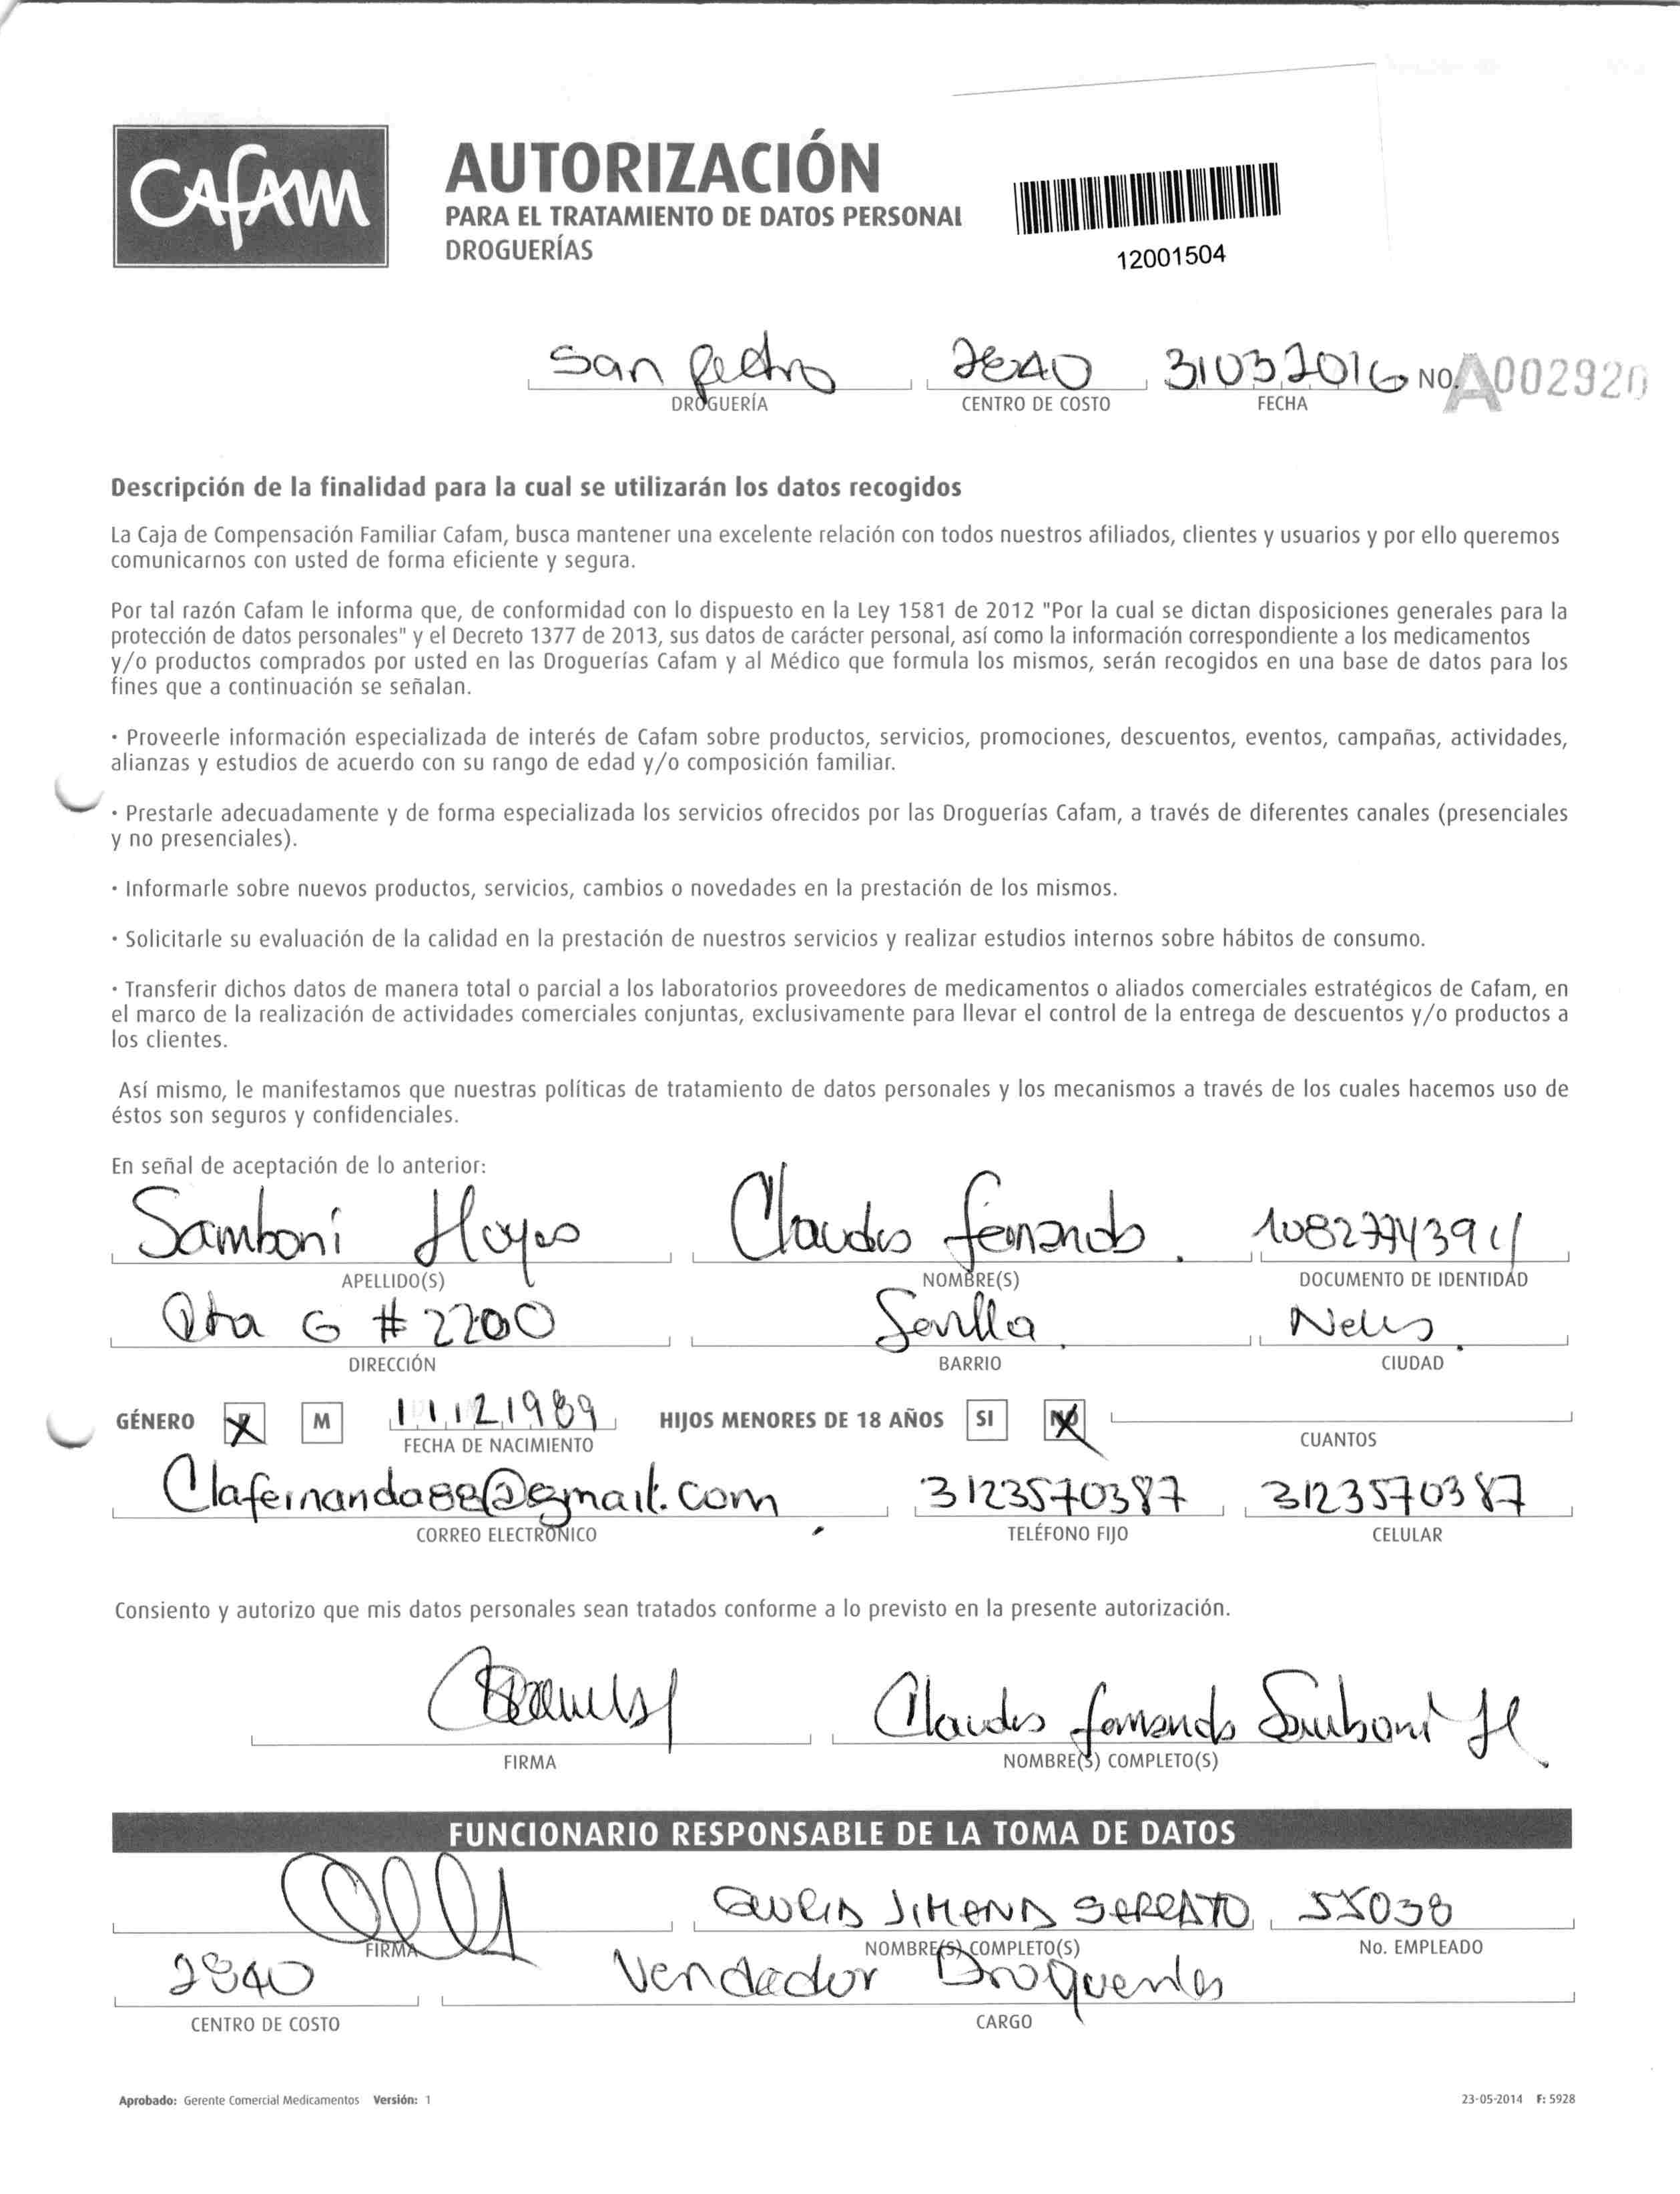 CAFAM
AUTORIZACIÓN
PARA EL TRATAMIENTO DE DATOS PERSONAL
DROGUERÍAS
12001504
San Pedro 2840 31032016 NO. A002920
DROGUERÍA CENTRO DE COSTO FECHA
Descripción de la finalidad para la cual se utilizarán los datos recogidos
La Caja de Compensación Familiar Cafam, busca mantener una excelente relación con todos nuestros afiliados, clientes y usuarios y por ello queremos
comunicarnos con usted de forma eficiente y segura.
Por tal razón Cafam le informa que, de conformidad con lo dispuesto en la Ley 1581 de 2012 "Por la cual se dictan disposiciones generales para la
protección de datos personales" y el Decreto 1377 de 2013, sus datos de carácter personal, así como la información correspondiente a los medicamentos
y/o productos comprados por usted en las Droguerías Cafam y al Médico que formula los mismos, serán recogidos en una base de datos para los
fines que a continuación se señalan.
· Proveerle información especializada de interés de Cafam sobre productos, servicios, promociones, descuentos, eventos, campañas, actividades,
alianzas y estudios de acuerdo con su rango de edad y/o composición familiar.
· Prestarle adecuadamente y de forma especializada los servicios ofrecidos por las Droguerías Cafam, a través de diferentes canales (presenciales
y no presenciales).
· Informarle sobre nuevos productos, servicios, cambios o novedades en la prestación de los mismos.
· Solicitarle su evaluación de la calidad en la prestación de nuestros servicios y realizar estudios internos sobre hábitos de consumo.
· Transferir dichos datos de manera total o parcial a los laboratorios proveedores de medicamentos o aliados comerciales estratégicos de Cafam, en
el marco de la realización de actividades comerciales conjuntas, exclusivamente para llevar el control de la entrega de descuentos y/o productos a
los clientes.
Así mismo, le manifestamos que nuestras políticas de tratamiento de datos personales y los mecanismos a través de los cuales hacemos uso de
éstos son seguros y confidenciales.
En señal de aceptación de lo anterior:
Samboni Hoyos Claudia fernanda. 1082774394
APELLIDO(S) NOMBRE(S) DOCUMENTO DE IDENTIDAD
G # 2200 Sevilla. Neiva.
DIRECCIÓN BARRIO CIUDAD
GÉNERO F M 11121989 HIJOS MENORES DE 18 AÑOS SI NO
FECHA DE NACIMIENTO CUANTOS
Clafernanda88@gmail.com 3123570387 3123570387
CORREO ELECTRÓNICO TELÉFONO FIJO CELULAR
Consiento y autorizo que mis datos personales sean tratados conforme a lo previsto en la presente autorización.
Claudia fernanda Samboni H
FIRMA NOMBRE(S) COMPLETO(S)
FUNCIONARIO RESPONSABLE DE LA TOMA DE DATOS
JIMENA 55038
FIRMA NOMBRE(S) COMPLETO(S) No. EMPLEADO
2840 Vendedor Droguerias
CENTRO DE COSTO CARGO
Aprobado: Gerente Comercial Medicamentos Versión: 1 23-05-2014 F: 5928